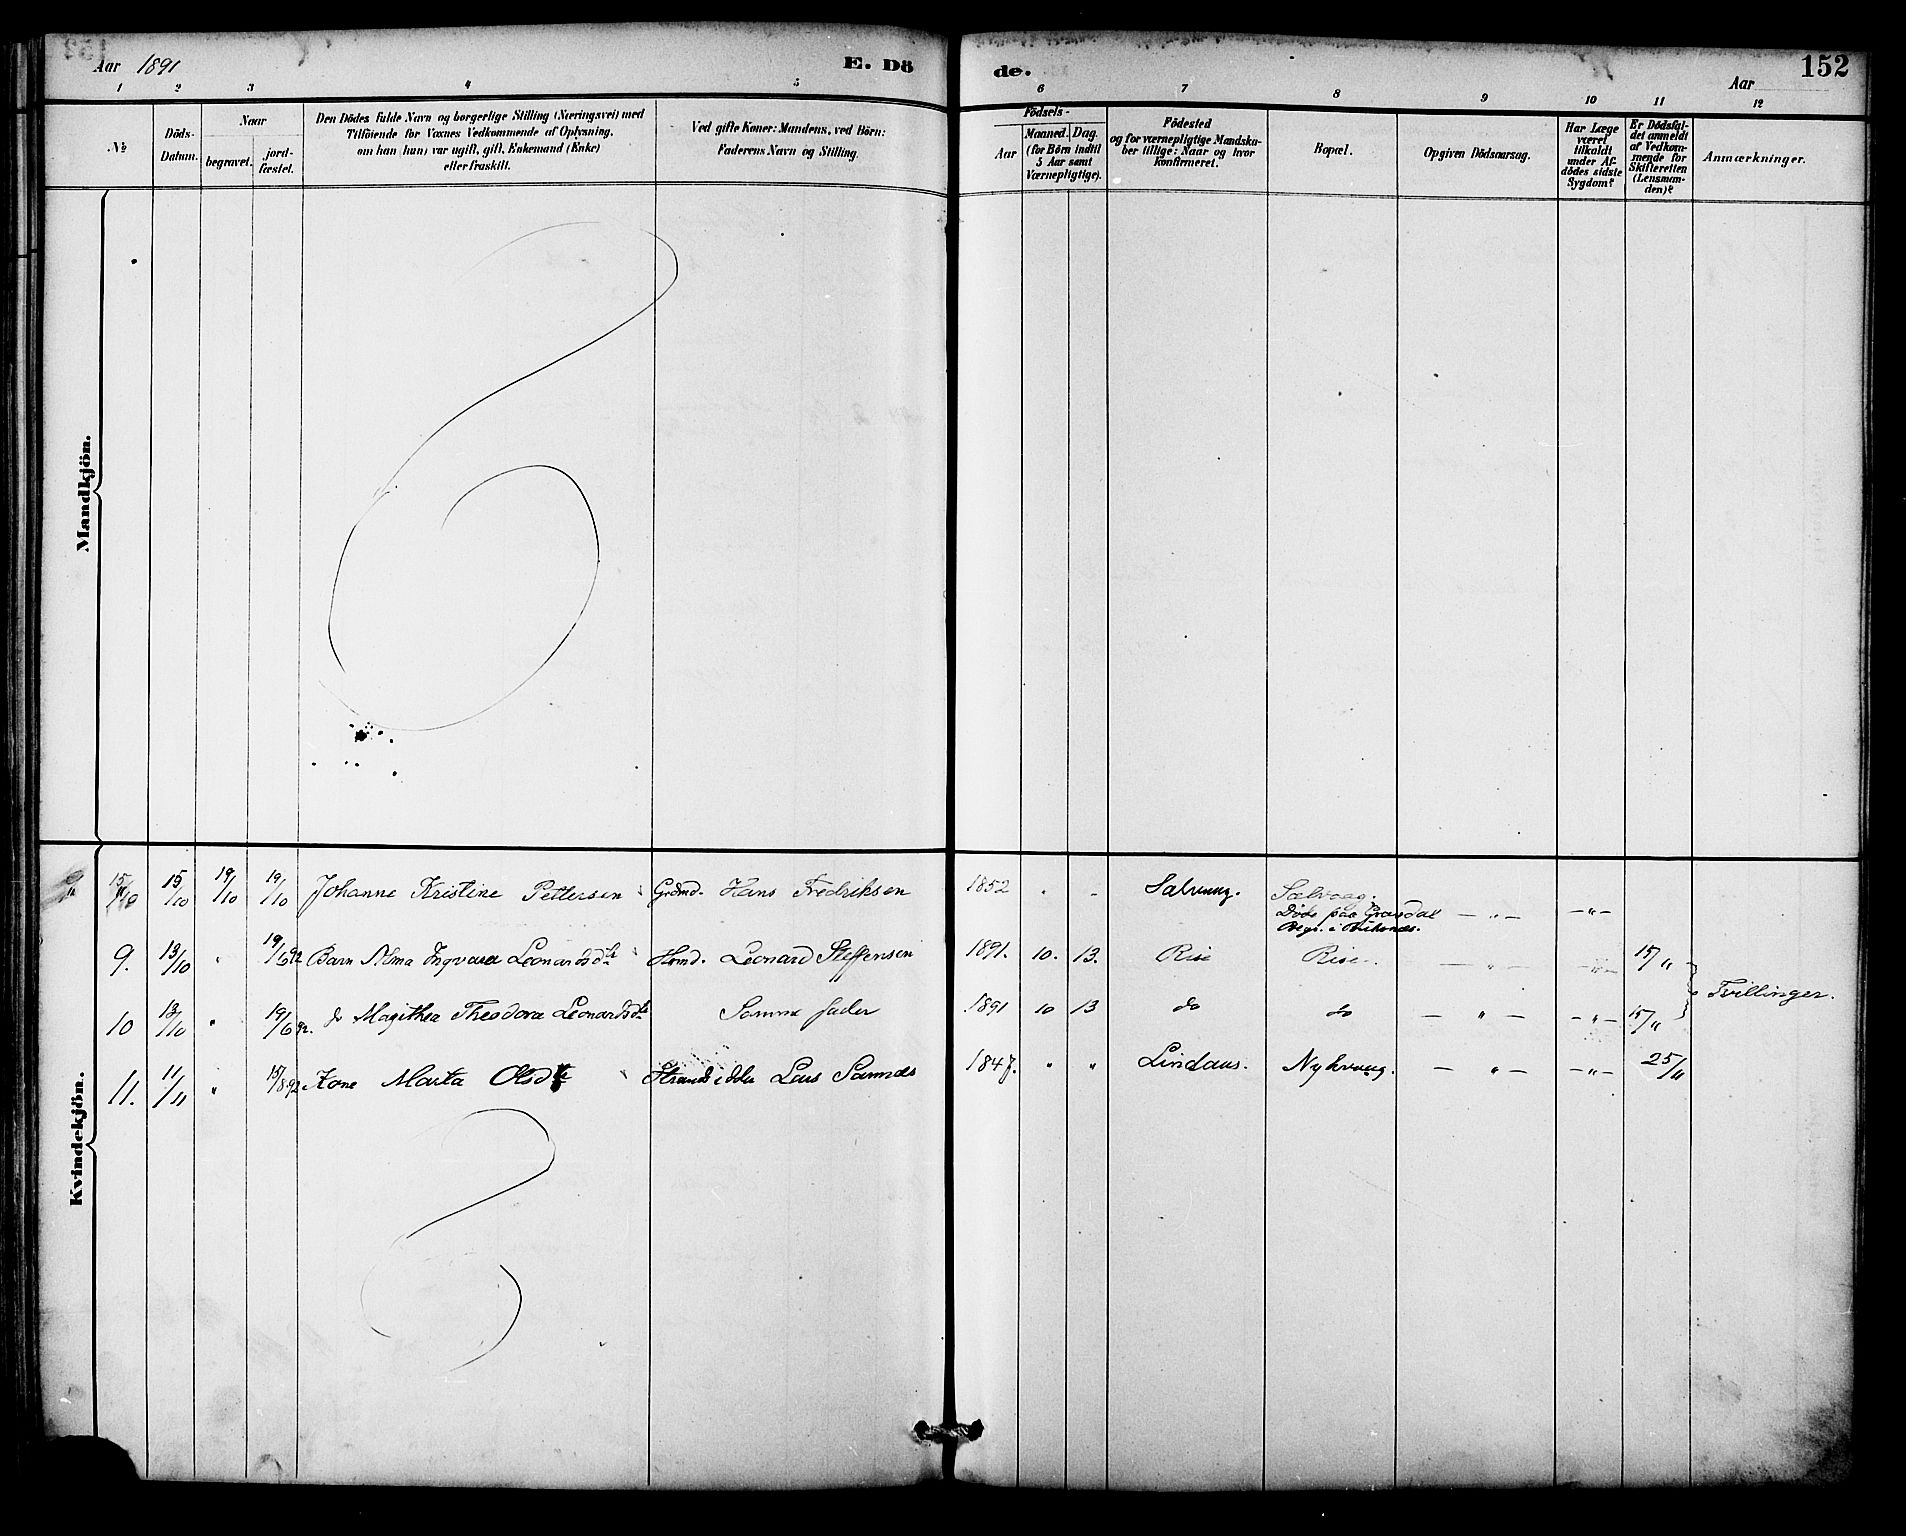 Aar 1891
E. Dö
de.
Aar
152
1 2 3 4 5
6 7 8 9 10 11 12
№
Döds-
Datum.
Naar
begravet.
jord-
fæstet.
Den Dödes fulde Navn og borgerlige Stilling (Næringsvei) med
Tilföiende for Voxnes Vedkommende af Oplysning,
om han (hun) var ugift, gift, Enkemand (Enke)
eller fraskilt.
Ved gifte Koner: Mandens, ved Börn:
Faderens Navn og Stilling.
Födsels-
Aar
Maaned. Dag.
(for Börn indtil
5 Aar samt
Værnepligtige).
Födested
og for værnepligtige Mandska-
ber tillige: Naar og hvor
konfirmeret.
Bopæl.
Opgiven Dödsaarsag.
Har Læge
været
tilkaldt
under Af-
dödes sidste
Sygdom?
Er Dödsfal-
det anmeldt
af Vedkom-
mende for
Skifteretten
(Lensman-
den)?
Anmærkninger.
Mandkjön.
Kvindekjön.
15/10 19/10 19/10 Johanne Kristine Pettersen Hans Fredriksen 1852 " - Salvaag. Sælvaag. — " — — " —
Döde paa
9. 13/10 " 19/6 92 Barn Alma Ingvara Leonardsdtr Leonard Steffensen 1891. 10. 13. Rise Rise — " — — " — 15/11
10 13/10 " 19/6 92. do Magithea Theodora Leonardsdtr Samme fader 1891 10 13 do do — " — — " — 15/11
Tvillinger.
11. 11/11 " 15/8 92 Kone Marta Olsdtr Lars 1847. " " Lindaas. Nykvaag. — " — — " — 25/11